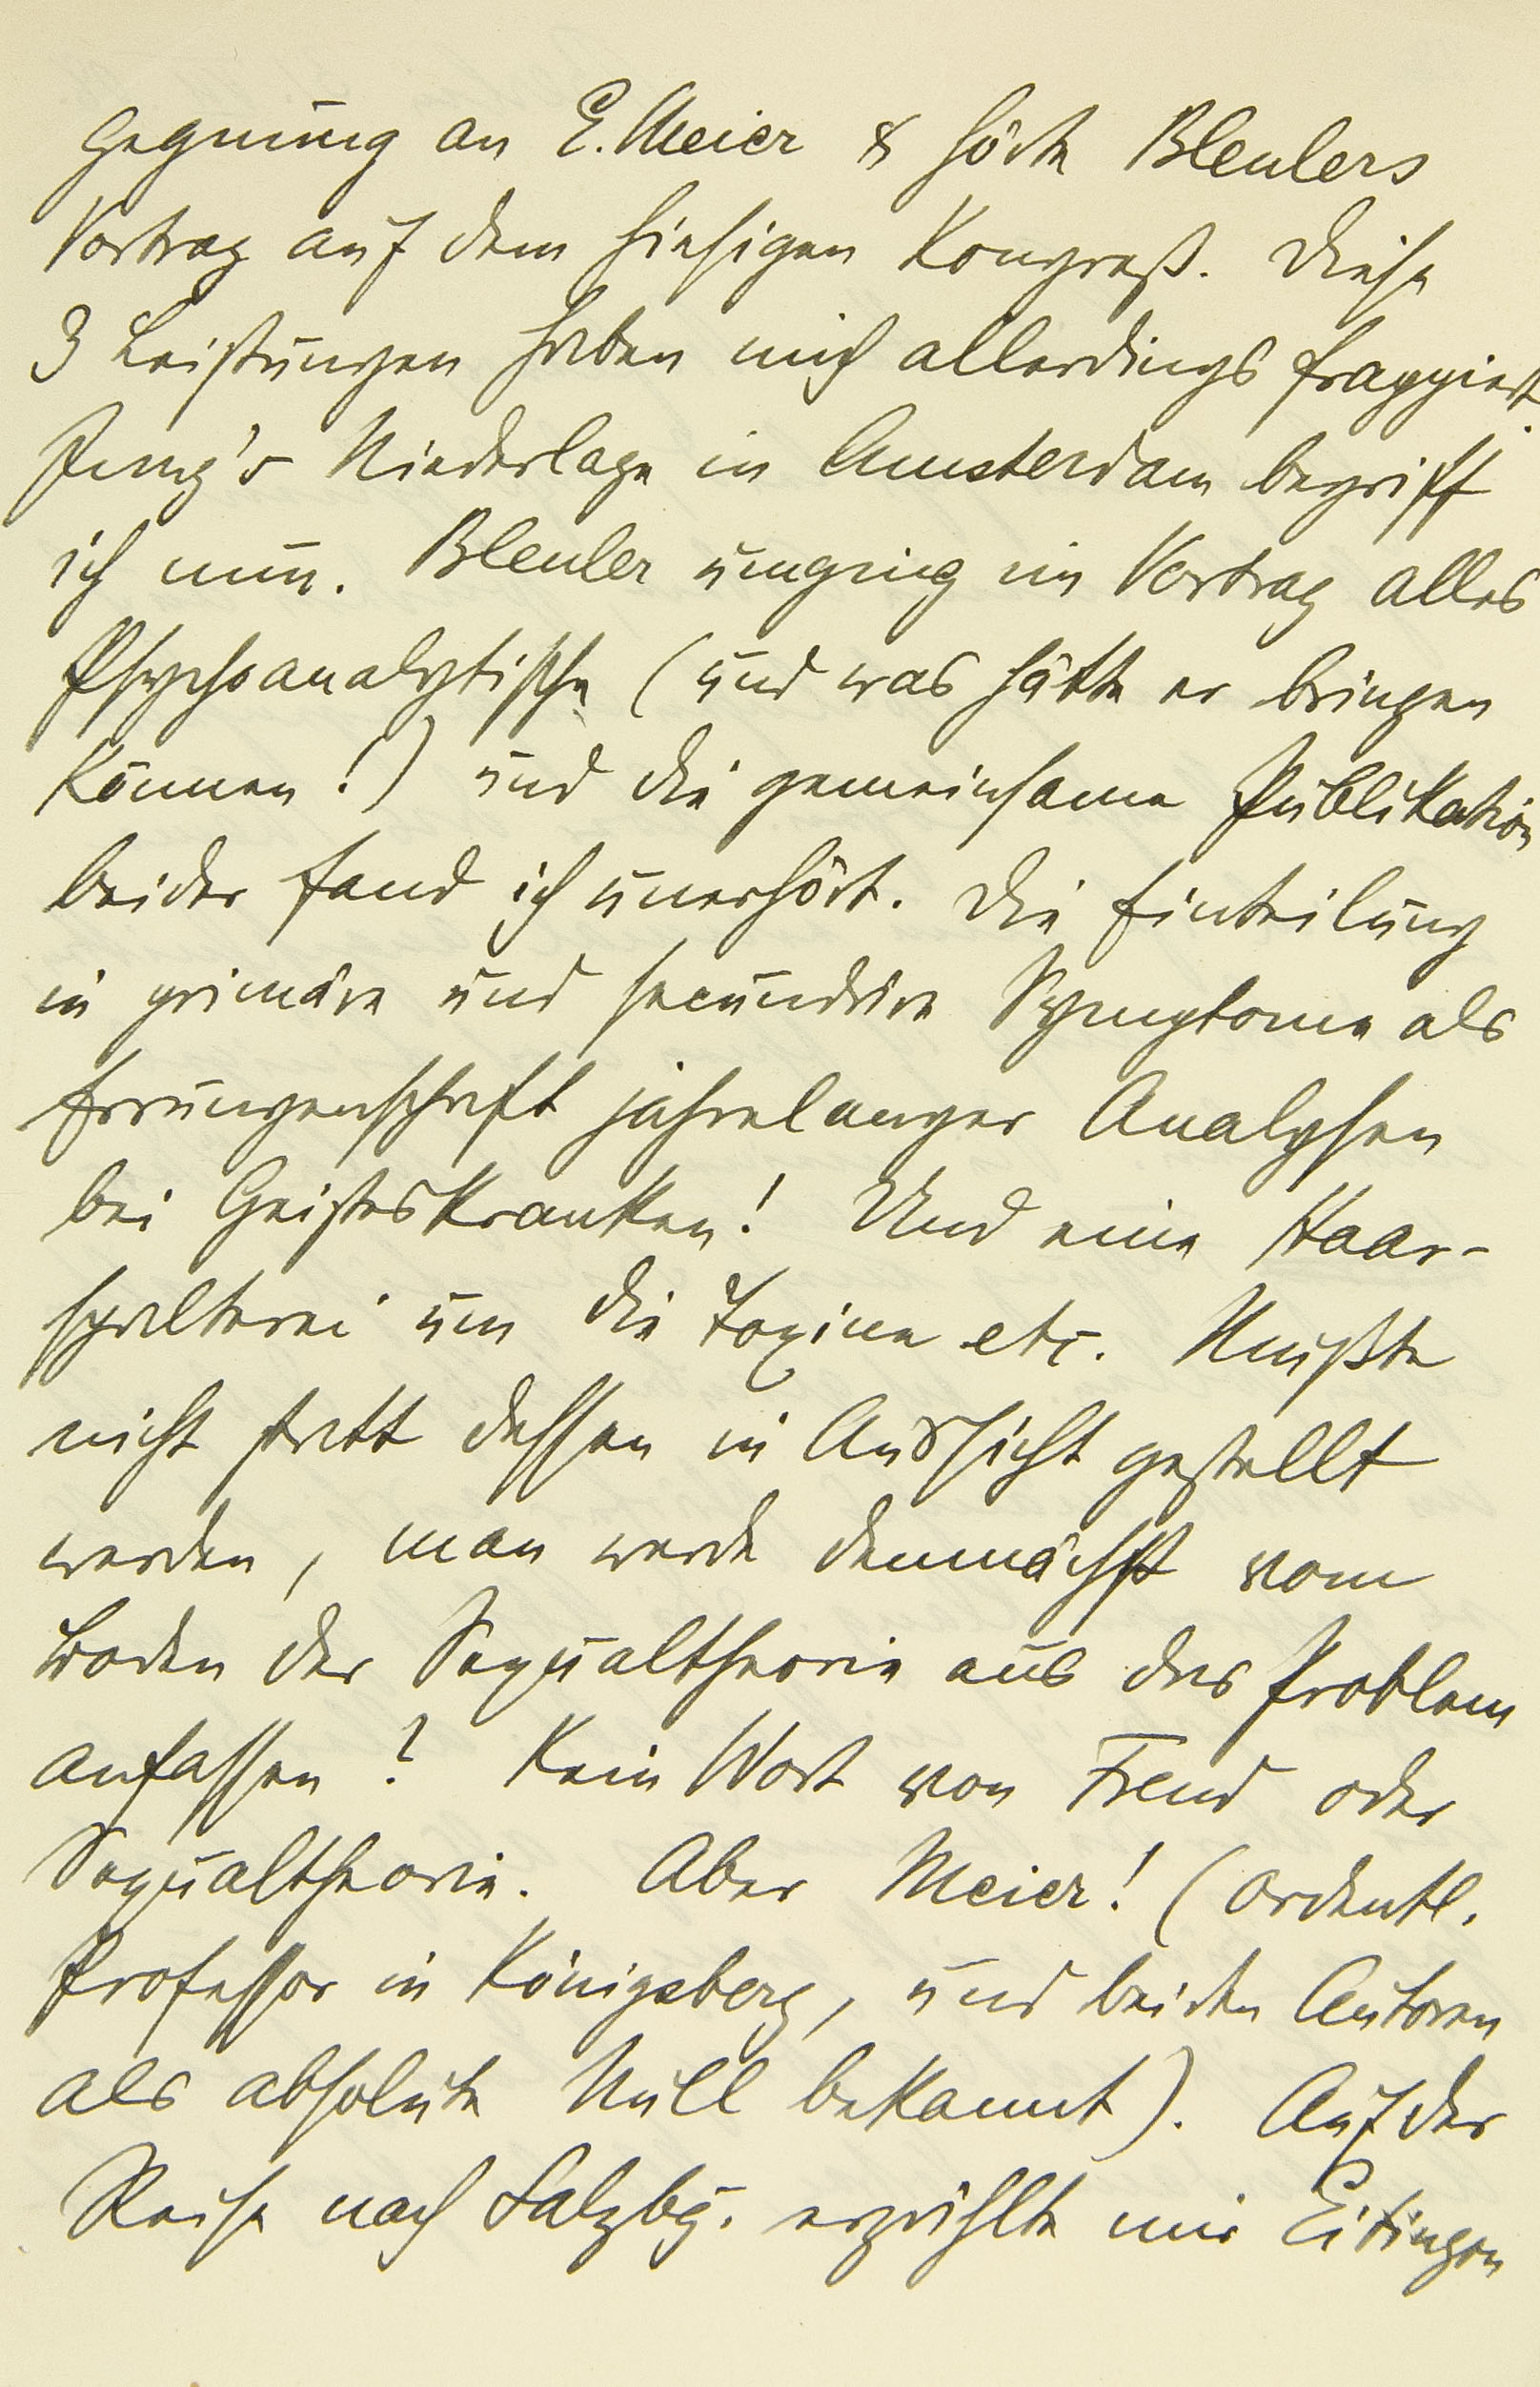 gegnung an E. Meier & hörte Bleulers
Vortrag auf dem hiesigen Kongreß. Diese
3 Leistungen haben mich allerdings frappiert.
Jung's Niederlage in Amsterdam begriff
ich nun. Bleuler umging im Vortrag alles
Psychoanalytische (und was hätte er bringen
können!) und die gemeinsame Publikation
beider fand ich unerhört. Die Einteilung
in primäre und secundäre Symptome als
Errungenschaft jahrelanger Analysen
bei Geisteskranken! Und eine Haar-
spalterei um die Toxine etc. Mußte
nicht statt dessen in Aussicht gestellt
werden, man werde demnächst vom
Boden der Sexualtheorie aus das Problem
anfassen? Kein Wort von Freud oder
Sexualtheorie. Aber Meier! (Ordentl.
Professor in Königsberg, und beiden Autoren
als absolute Null bekannt). Auf der
Reise nach Salzbg. erzählte mir Eitingon